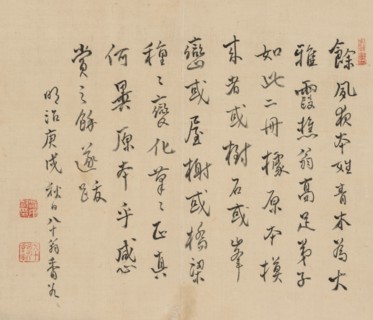 餘夙夜本姓青木為大
雅霞樵翁高足弟子
如此二冊據原本模
來者或樹石或峯
巒或屋榭或橋梁
種々變化筆々正真
何異原本乎感
賞之餘遂跋
明治庚戌秋日八十翁